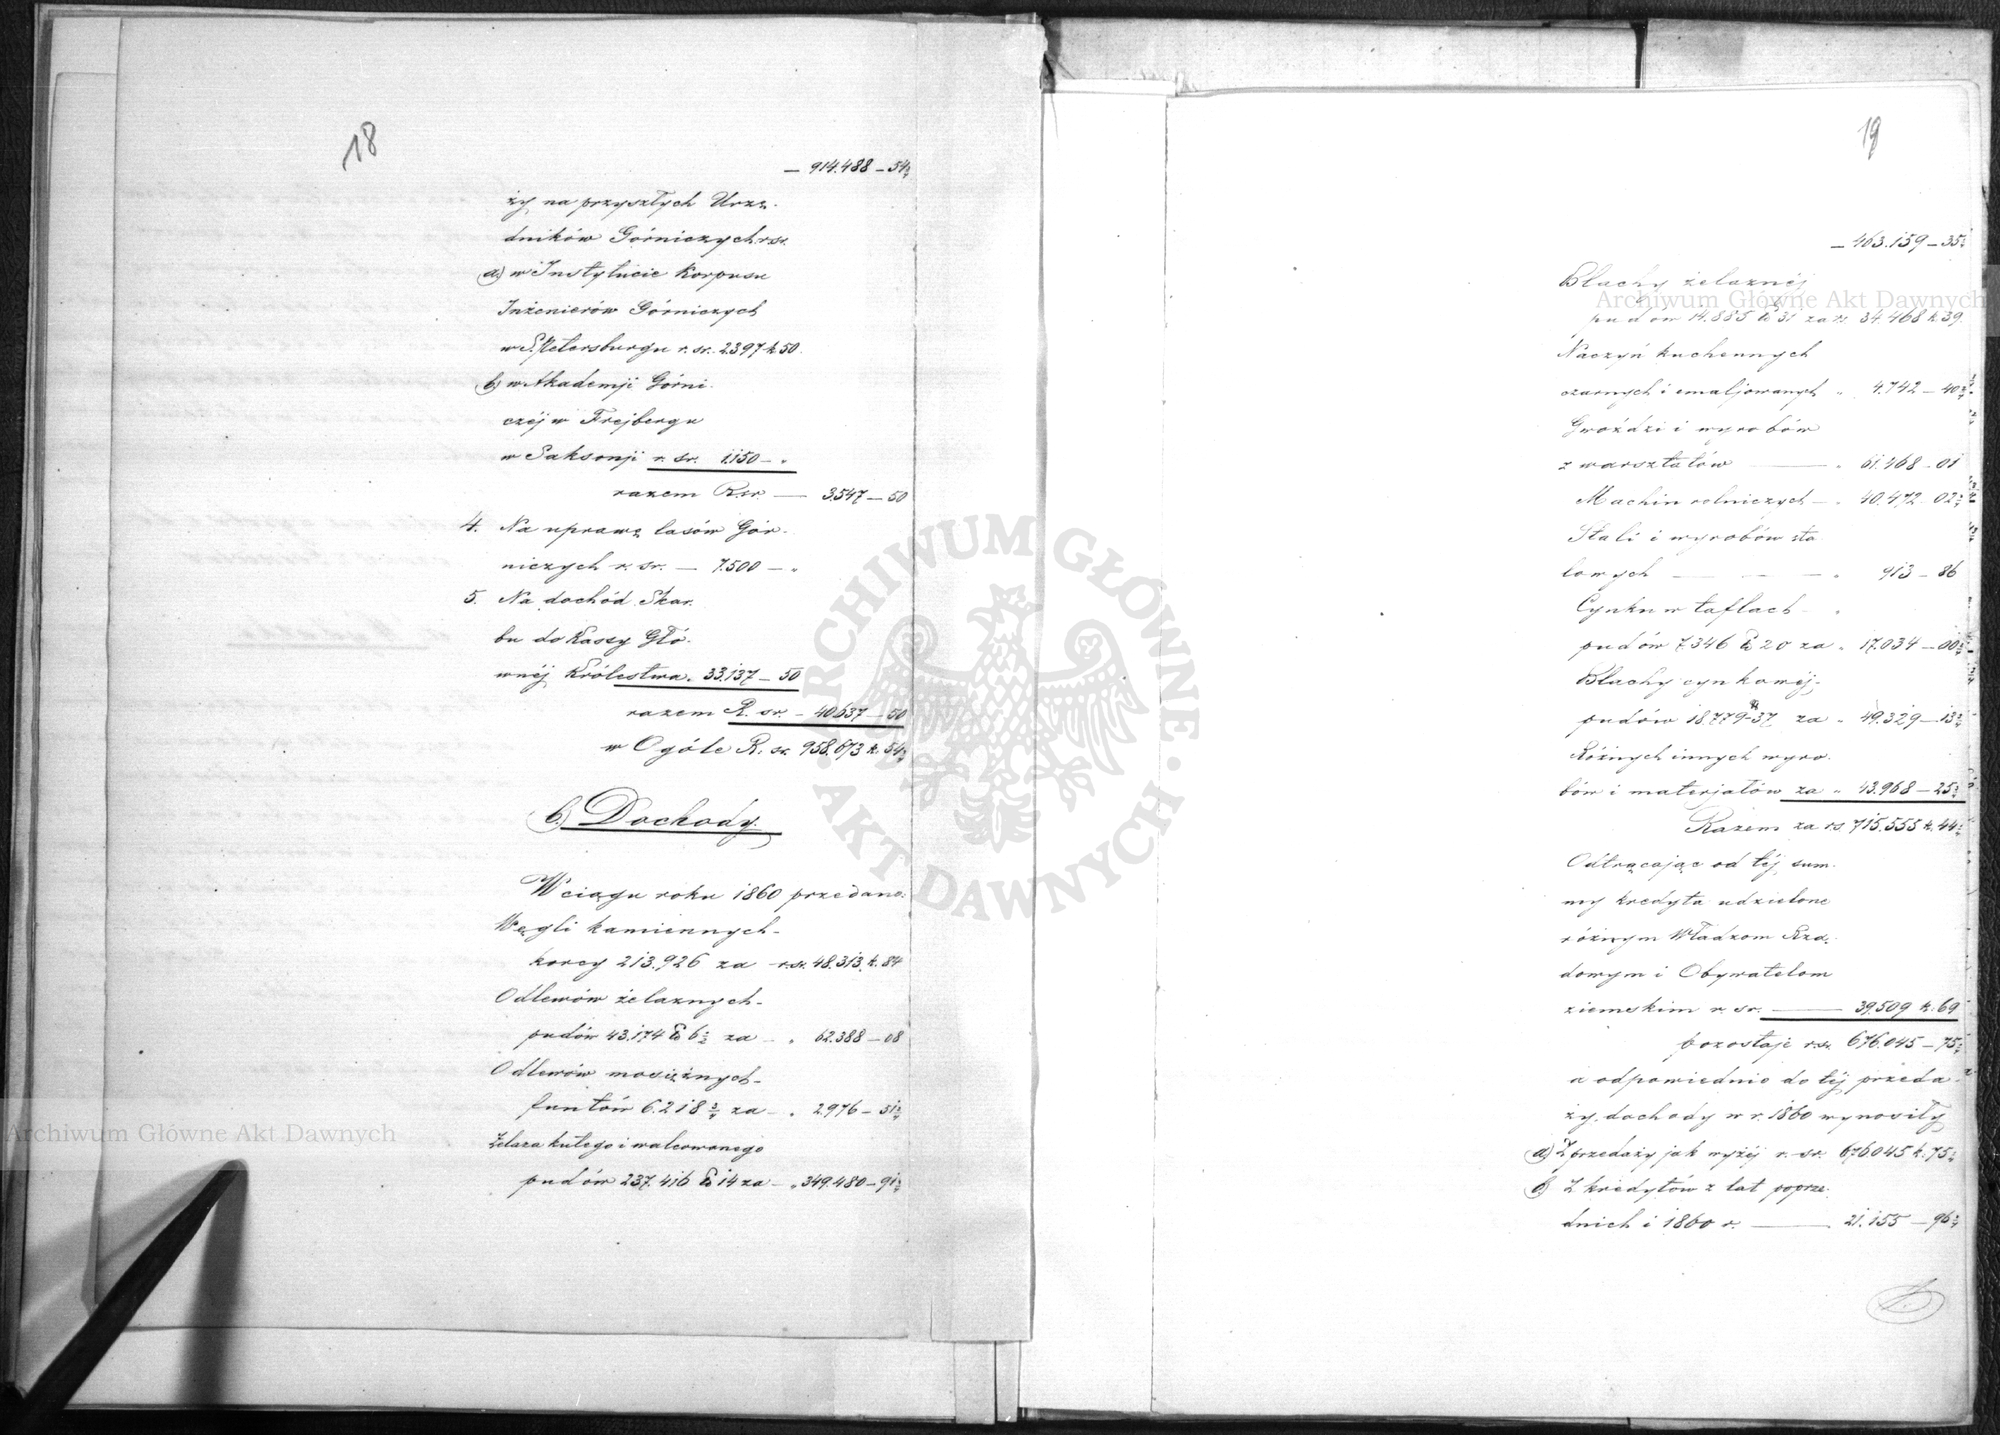 18
— 914.488 — 54¾
ży na przyszłych Urzę-
dników Górniczych r. sr.
a) w Instytucie Korpusu
Inżenierów Górniczych
w S. Petersburgu r. sr. 2.397 k. 50.
b) w Akademji Górni-
czéj w Frejbergu
w Saksonji r. sr. 1.150 — „
razem R. sr. — 3.547 — 50
4. Na uprawę lasów Gór-
niczych r. sr. — 7.500 — „
5. Na dochód Skar-
bu do Kassy Głó-
wnéj Królestwa „ 33.137 — 50
razem R. sr. — 40.637 — 50
w Ogóle R. sr. 958.673 k. 54¾
b.) Dochody.
W ciągu roku 1860 przedano:
Węgli kamiennych —
korcy 213.926 za r. sr. 48.313 k. 84
Odlewów żelaznych —
pudów 43.174 ℔ 6½ za — „ 62.388 — 08
Odlewów mosiężnych —
funtów 6.218 ¾ za — „ 2.976 — 51¾
Żelaza kutego i walcowanego
pudów 237.416 ℔ 14 za — „ 349.480 — 91¾
19
— 463.159 — 35¼
Blachy żelaznéj
pudów 14.885 ℔ 31 za rs 34.468 k. 39.
Naczyń kuchennych
czarnych i emaljowanych „ 4.742 — 40¾
Gwoździ i wyrobów
z warsztatów — „ 61.468 — 01
Machin rolniczych — „ 40.472 — 02¾
Stali i wyrobów sta-
lowych — — — „ 913 — 86
Cynku w taflach — „
pudów 7.346 ℔ 20 za „ 17.034 — 00¾
Blachy cynkowéj —
pudów 18.779 ℔ 37 za „ 49.329 — 13¾
Różnych innych wyro-
bów i materjałów za „ 43.968 — 25¾
Razem za rs. 715.555 k. 44¾
Odtrącając od téj sum-
my kredyta udzielone
różnym Władzom Rzą-
dowym i Obywatelom
ziemskim r. sr. — 39.509 k. 69
pozostaje r. sr. 676.045 — 75¾
a odpowiednio do téj przeda-
ży, dochody w r. 1860 wynosiły
a) Z przedaży jak wyżéj r. sr. 676.045 k. 75¾
b) Z kredytów z lat poprze-
dnich i 1860 r. — 21.155 — 96¾
ARCHIWUM GŁÓWNE AKT DAWNYCH
Archiwum Główne Akt Dawnych
Archiwum Główne Akt Dawnych